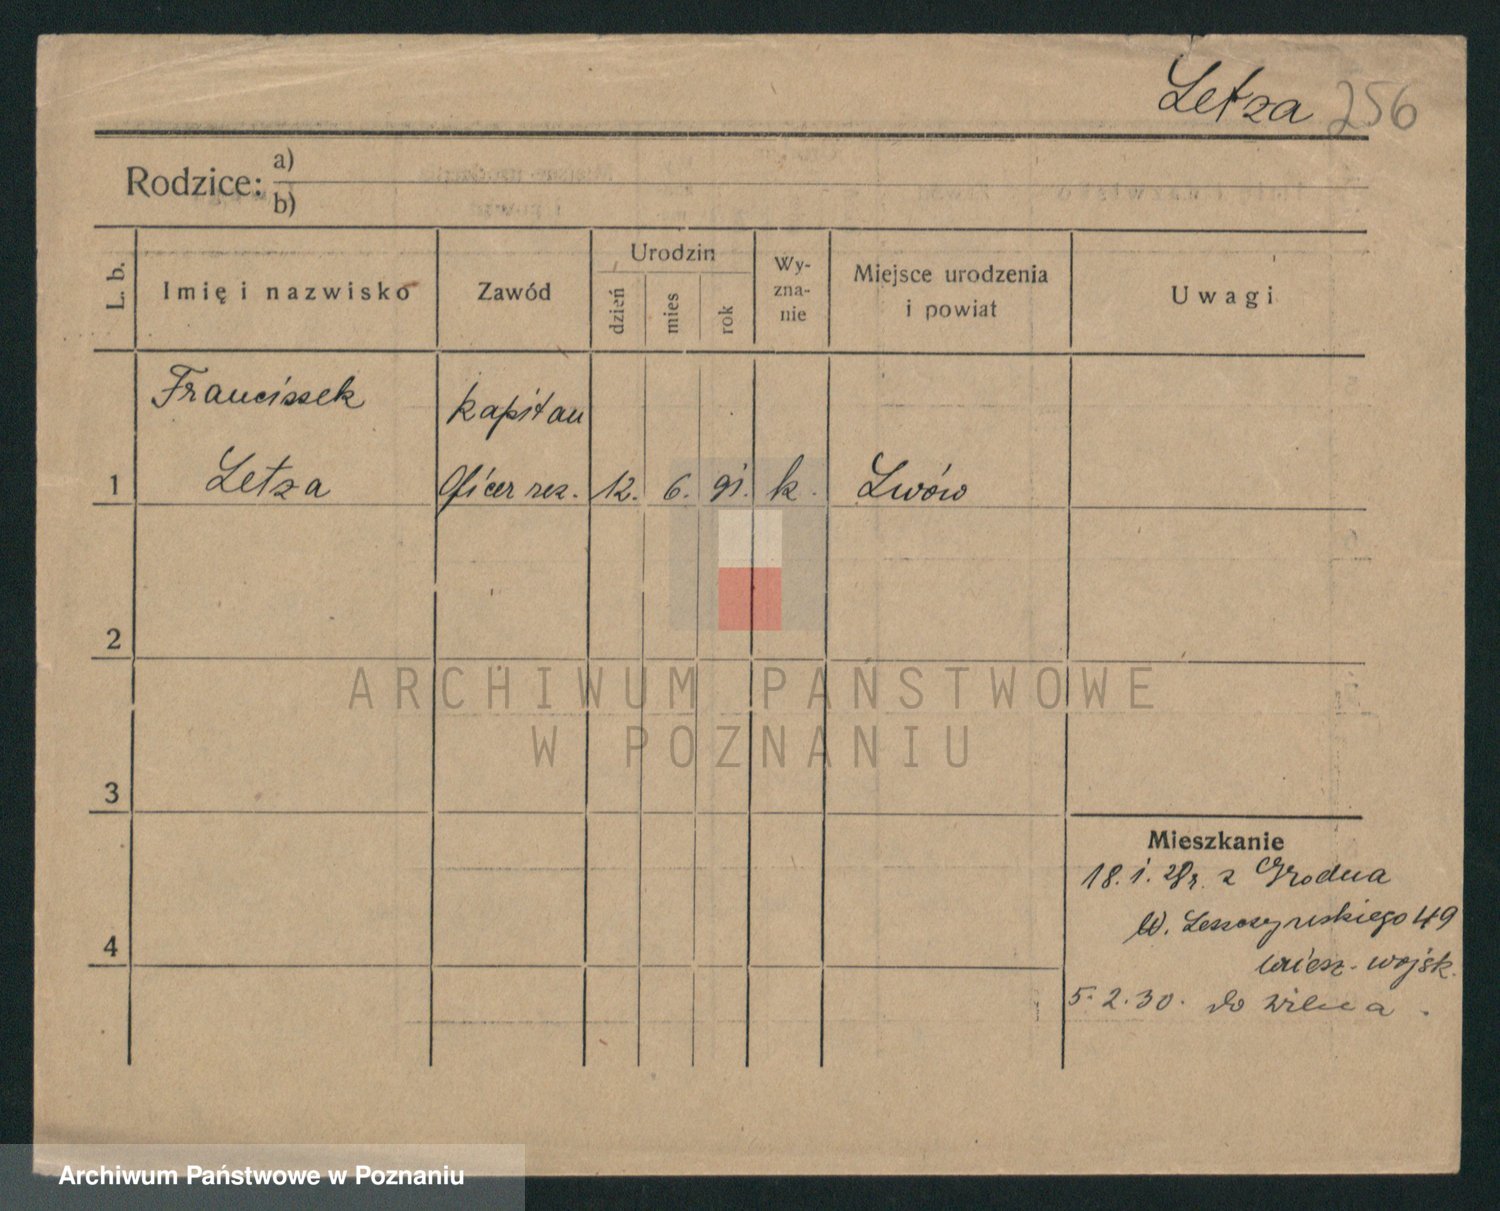 Letza 256
Rodzice: a)
b)
L. b.
Imię i nazwisko
Zawód
Urodzin
dzień
mies
rok
Wy-
zna-
nie
Miejsce urodzenia
i powiat
Uwagi
Franciszek kapitan
1 Letza Oficer rez. 12. 6. 91. k. Lwów
2
3
4
Mieszkanie
18.1.28r. z Grodna
W. Leszczyńskiego 49
miesz. wojsk.
5.2.30. do Wilna.
ARCHIWUM PAŃSTWOWE
W POZNANIU
Archiwum Państwowe w Poznaniu